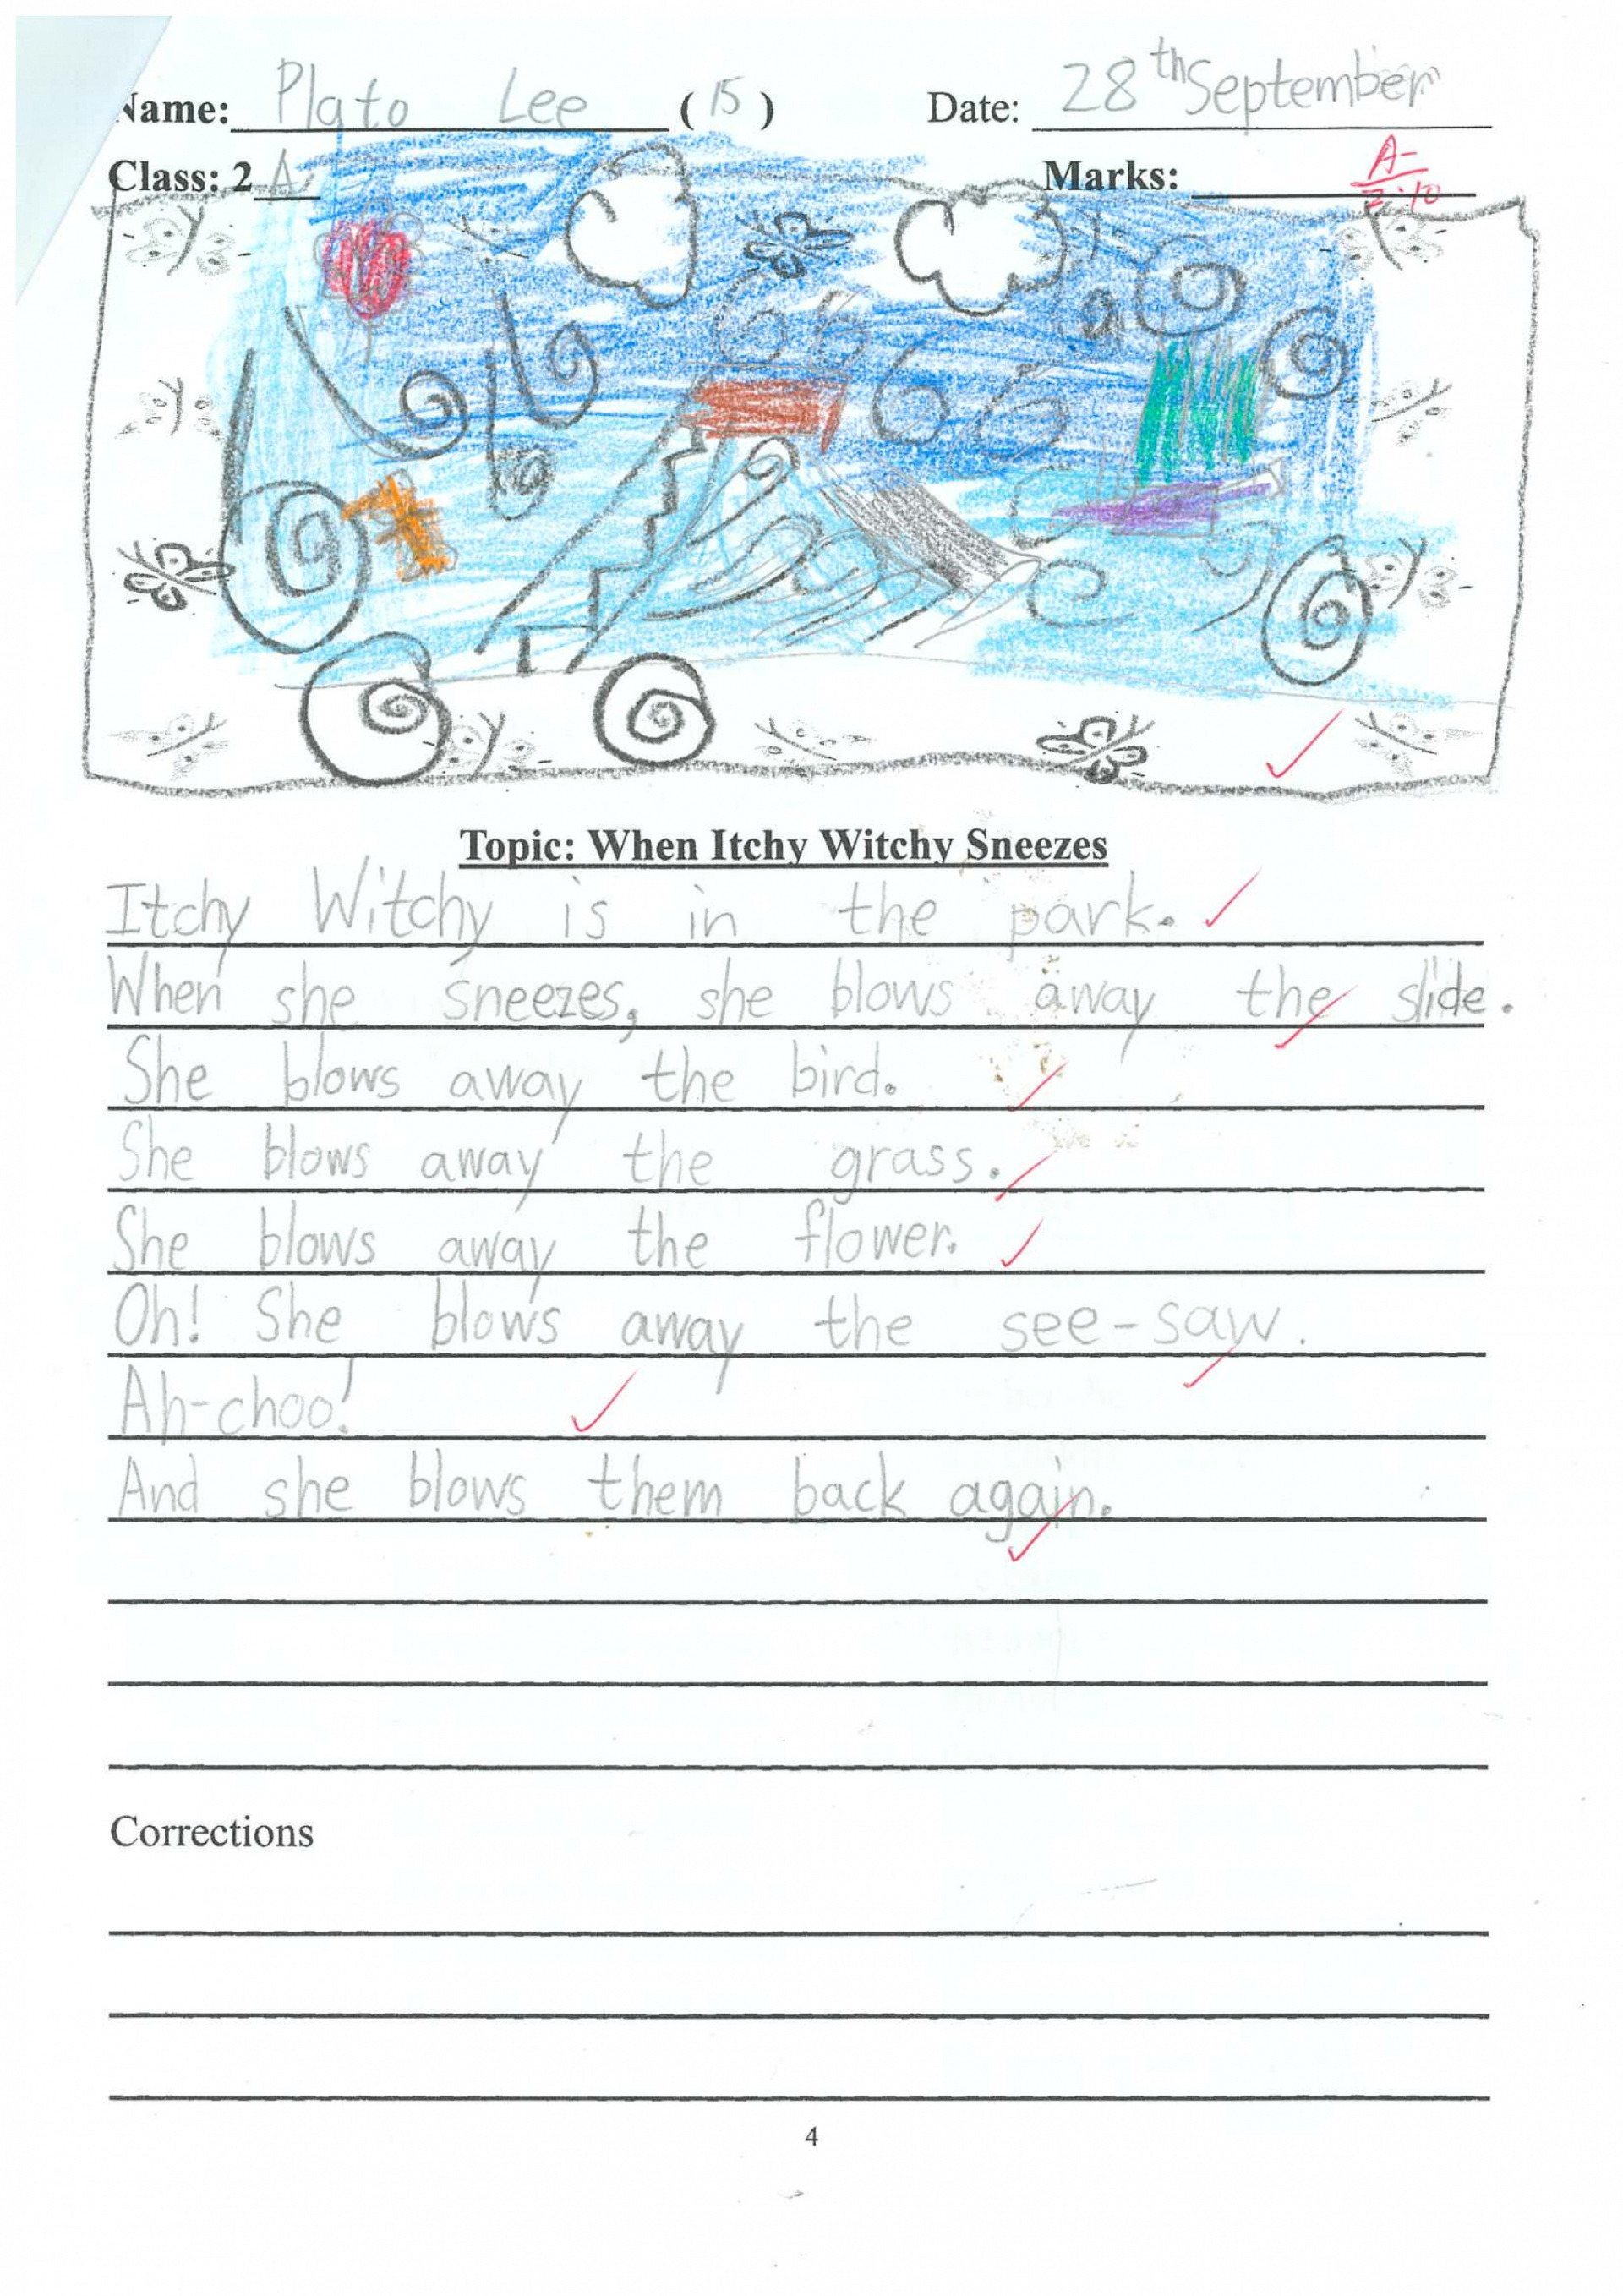 Name: Plato Lee (15) Date: 28th September
Class: 2A Marks: A-
2.10
Topic: When Itchy Witchy Sneezes
Itchy Witchy is in the park.
When she sneezes, she blows away the slide.
She blows away the bird.
She blows away the grass.
She blows away the flower.
Oh! She blows away the see-saw.
Ah-choo!
And she blows them back again.
Corrections
4